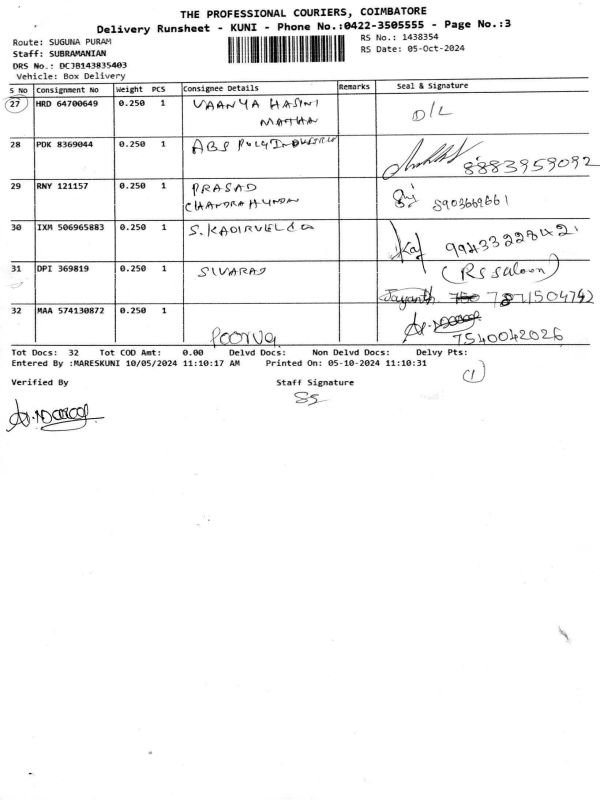 THE PROFESSIONAL COURIERS, COIMBATORE
Delivery Runsheet - KUNI - Phone No.:0422-3505555 - Page No.:3
Route: SUGUNA PURAM
RS No.: 1438354
Staff: SUBRAMANIAN
RS Date: 05-Oct-2024
DRS No.: DCJB143835403
Vehicle: Box Delivery
S No Consignment No Weight PCS Consignee Details Remarks Seal & Signature
27 HRD 64700649 0.250 1 VAANYA HASINI D/L
MATHAN
28 PDK 8369044 0.250 1 ABS 8883959092
29 RNY 121157 0.250 1 PRASAD 8903669661
30 IXM 506965883 0.250 1 S. KADIRVEL & CO 9943322842
31 DPI 369819 0.250 1 SIVARAJ (RS Saloon)
Jayanth 7871504742
32 MAA 574130872 0.250 1 POORVA 7540042026
Tot Docs: 32 Tot COD Amt: 0.00 Delvd Docs: Non Delvd Docs: Delvy Pts:
Entered By :MARESKUNI 10/05/2024 11:10:17 AM Printed On: 05-10-2024 11:10:31
(1)
Verified By Staff Signature